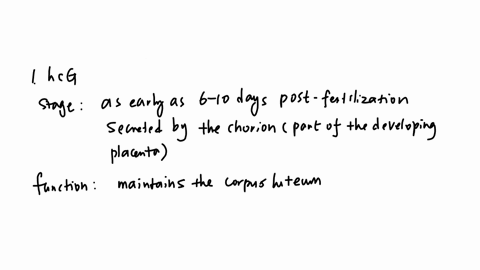 1. hCG
Stage: as early as 6-10 days post-fertilization
Secreted by the chorion (part of the developing
placenta)
function: maintains the corpus luteum